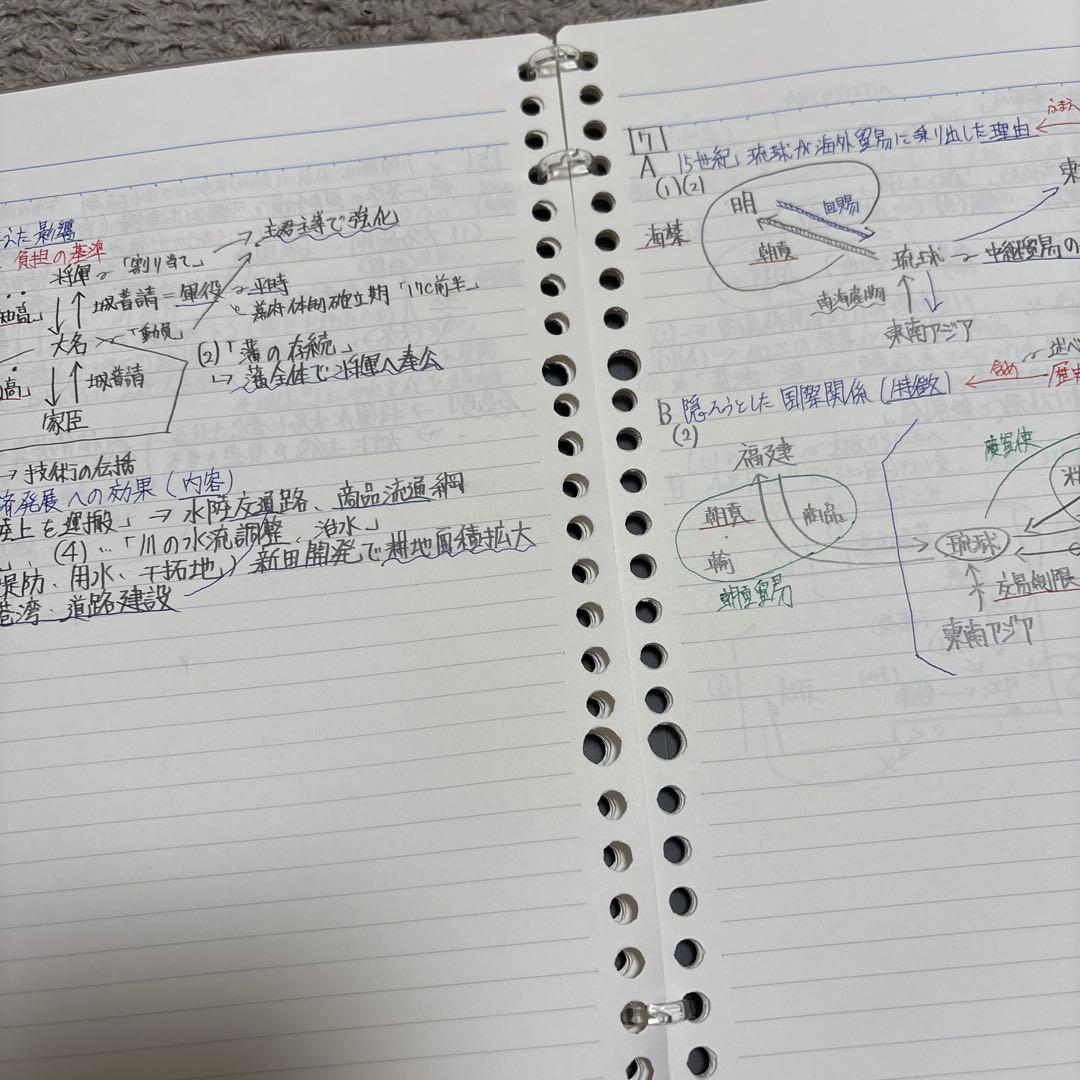 えた影響
負担の基準
将軍 「割り当て」
主君主導で強化
城普請=軍役 平時
幕府体制確立期「17C前半」
知高」
大名 「動員」
(2)「藩の存続」
城普請
→ 藩全体で将軍へ奉公
高」
家臣
→ 技術の伝播
済発展への効果(内容)
陸上を運搬」→ 水陸交通路、商品流通網
(4)…「川の水流調整、治水」
堤防、用水、干拓地」 新田開発で耕地面積拡大
港湾、道路建設
7
A 15世紀、琉球が海外貿易に乗り出した理由
ふまえ
(1)(2)
明
回賜
東
海禁
朝貢
琉球 中継貿易の
南海産物
東南アジア
B 隠そうとした国際関係(特徴)
含め
述べ
歴史
(2)
福建
慶賀使
朝貢
商品
輸
琉球
朝貢貿易
交易制限
東南アジア